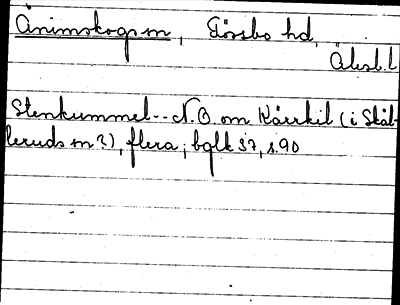 Ånimskogs m, Tössbo hd,
Älvsb. l
Stenkummel -- N.O. om Kärrkil (i Skål-
leruds m?), flera; bglk 37, s. 90